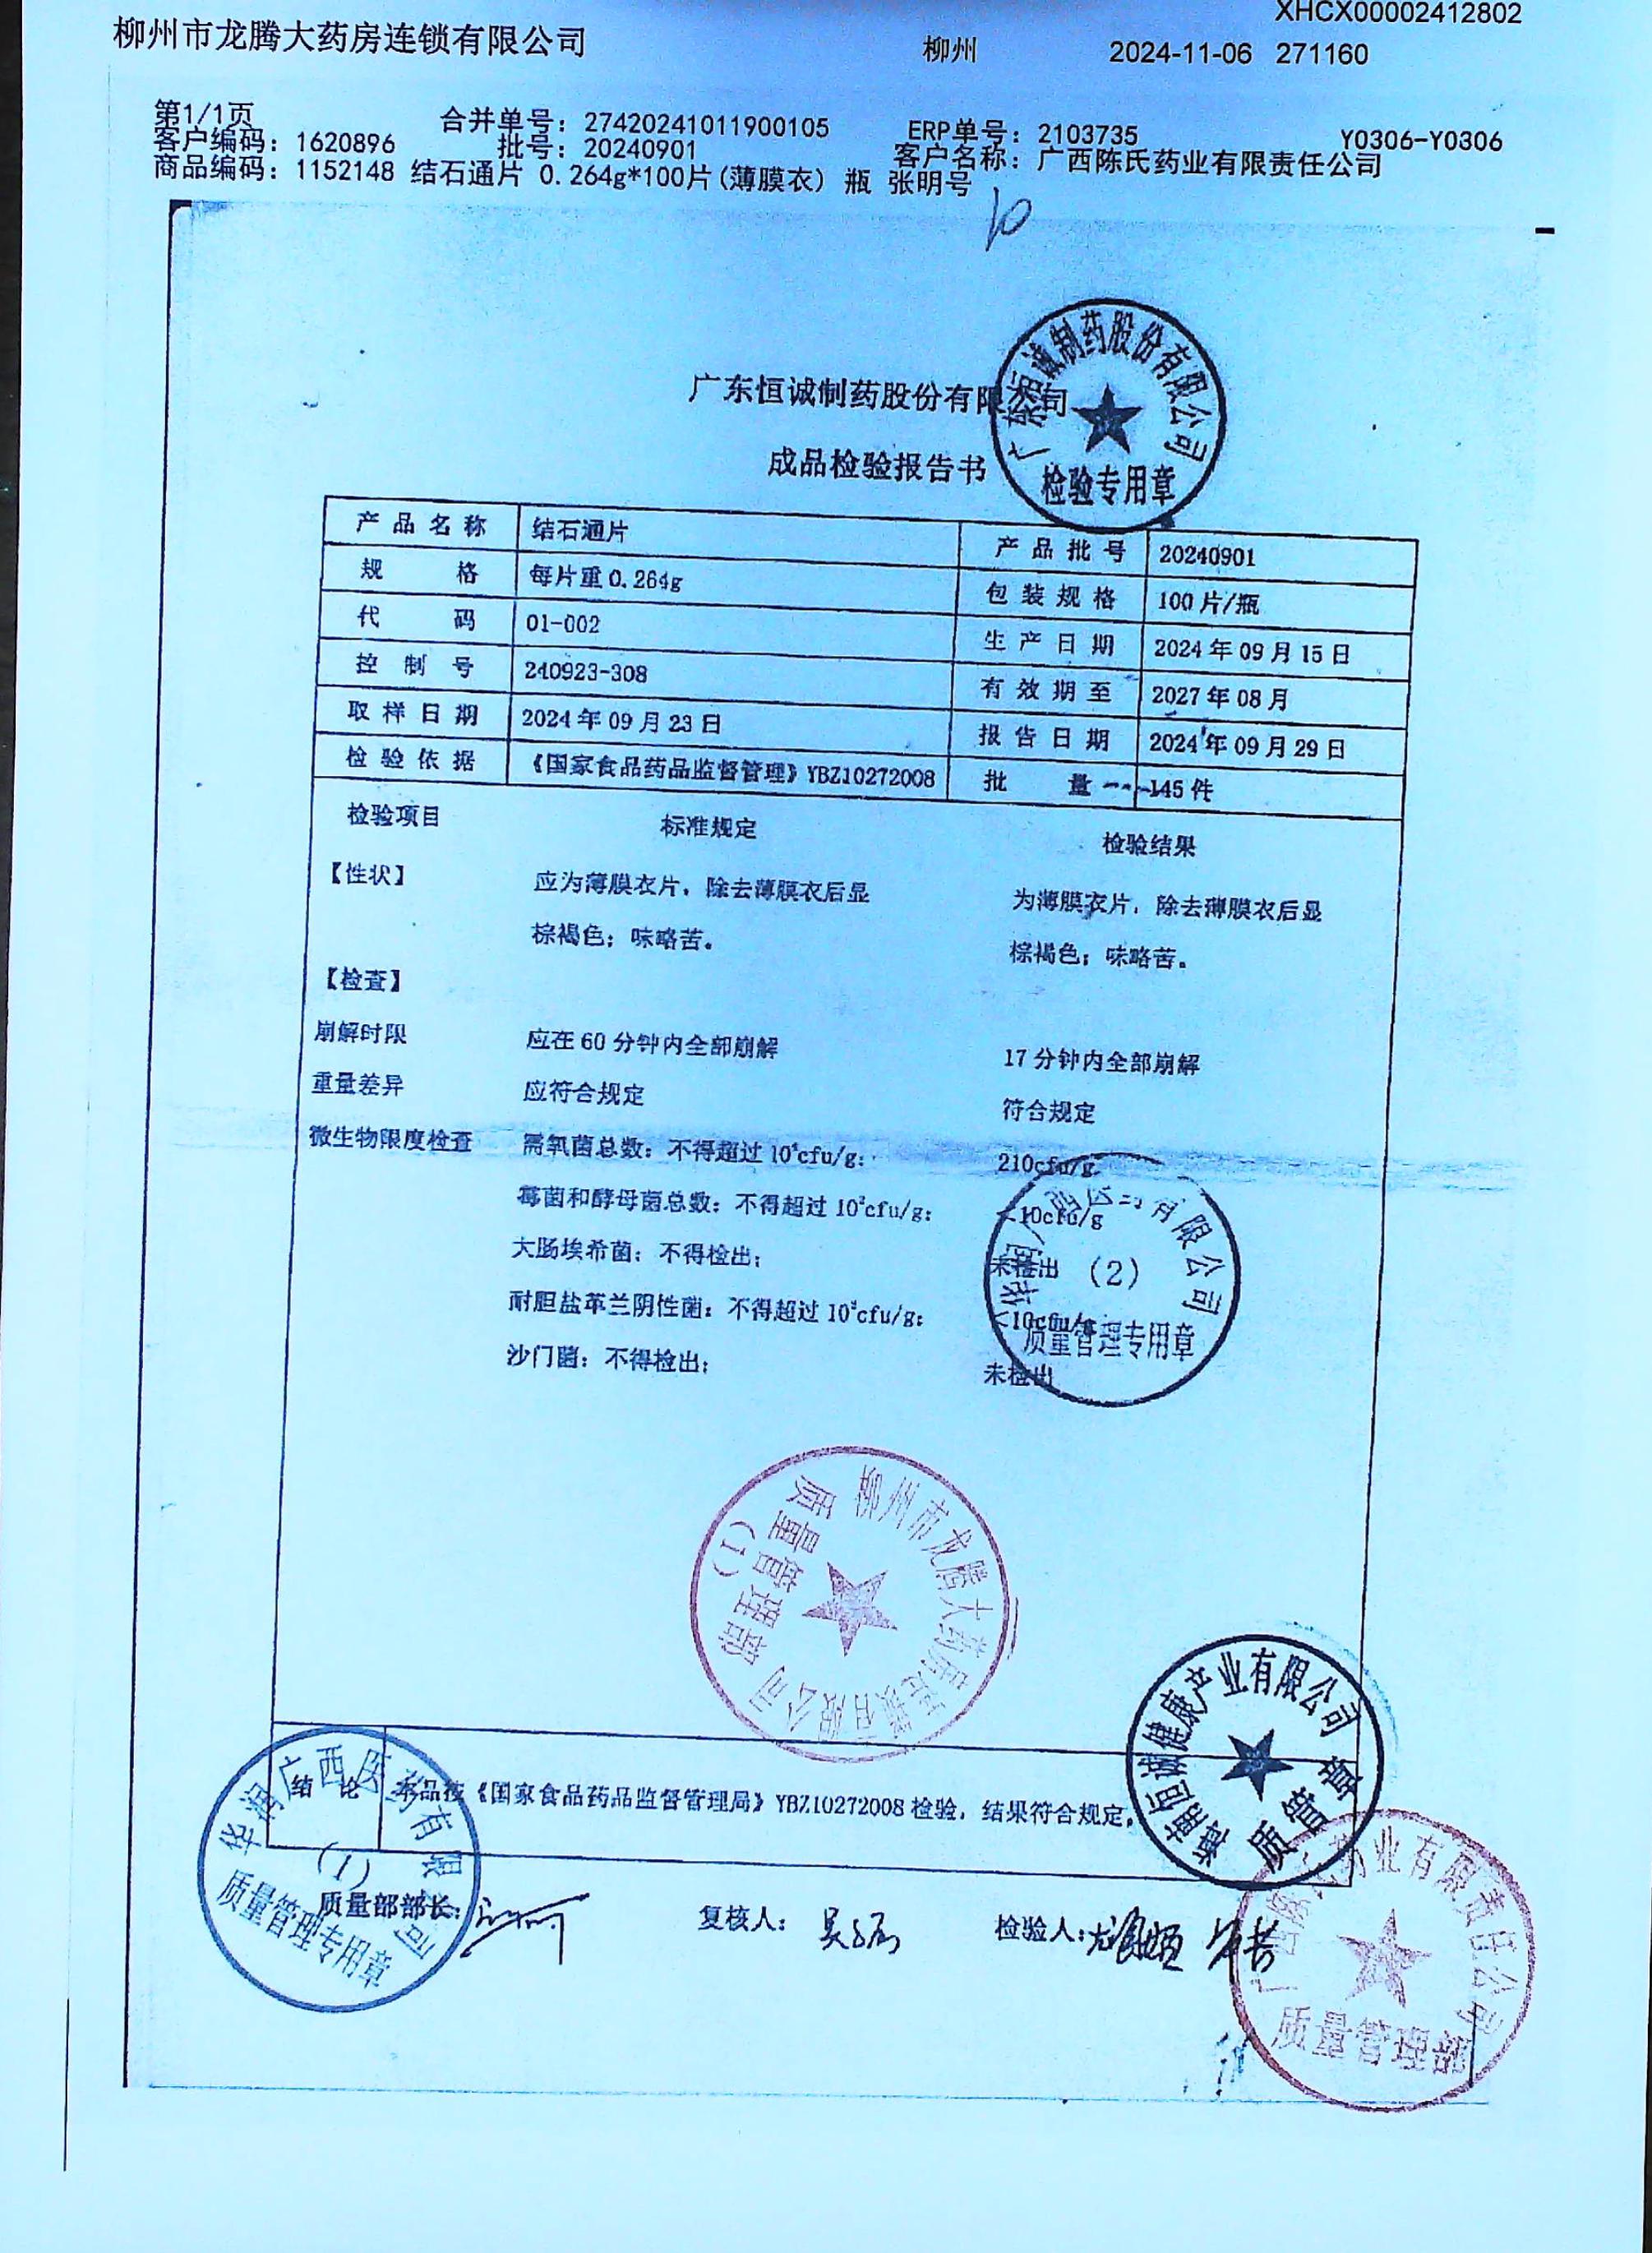 XHCX00002412802
柳州市龙腾大药房连锁有限公司 柳州 2024-11-06 271160
第1/1页 合并单号：27420241011900105 ERP单号：2103735 Y0306-Y0306
客户编码：1620896 批号：20240901 客户名称：广西陈氏药业有限责任公司
商品编码：1152148 结石通片 0.264g*100片(薄膜衣) 瓶 张明号
广东恒诚制药股份有限公司
成品检验报告书
广东恒诚制药股份有限公司
检验专用章
产品名称 结石通片 产品批号 20240901
规格 每片重0.264g 包装规格 100片/瓶
代码 01-002 生产日期 2024年09月15日
控制号 240923-308 有效期至 2027年08月
取样日期 2024年09月23日 报告日期 2024年09月29日
检验依据 《国家食品药品监督管理》YBZ10272008 批量 145件
检验项目 标准规定 检验结果
【性状】 应为薄膜衣片，除去薄膜衣后显 为薄膜衣片，除去薄膜衣后显
棕褐色；味略苦。 棕褐色；味略苦。
【检查】
崩解时限 应在60分钟内全部崩解 17分钟内全部崩解
重量差异 应符合规定 符合规定
微生物限度检查 需氧菌总数：不得超过 cfu/g； 210cfu/g
霉菌和酵母菌总数：不得超过10²cfu/g； <10cfu/g
大肠埃希菌：不得检出； 未检出
耐胆盐革兰阴性菌：不得超过 cfu/g； <10cfu/g
沙门菌：不得检出； 未检出
有限公司
(2)
质量管理专用章
柳州市龙腾大药房连锁有限公司
质量管理部
(1)
海南恒诚健康产业有限公司
质管章
结论 本品按《国家食品药品监督管理局》YBZ10272008检验，结果符合规定。
华润广西医药有限公司
(1)
质量管理专用章
质量部部长： 复核人： 检验人：
药业有限责任公司
质量管理部